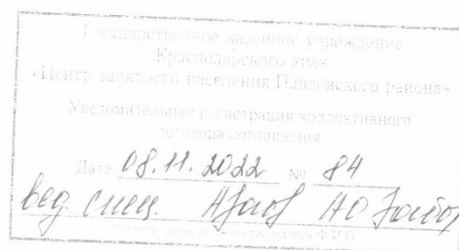 Государственное казенное учреждение
Краснодарского края
«Центр занятости населения Павловского района»
Уведомительная регистрация коллективного
договора соглашения
Дата 08.11.2022 № 84
вед. спец.